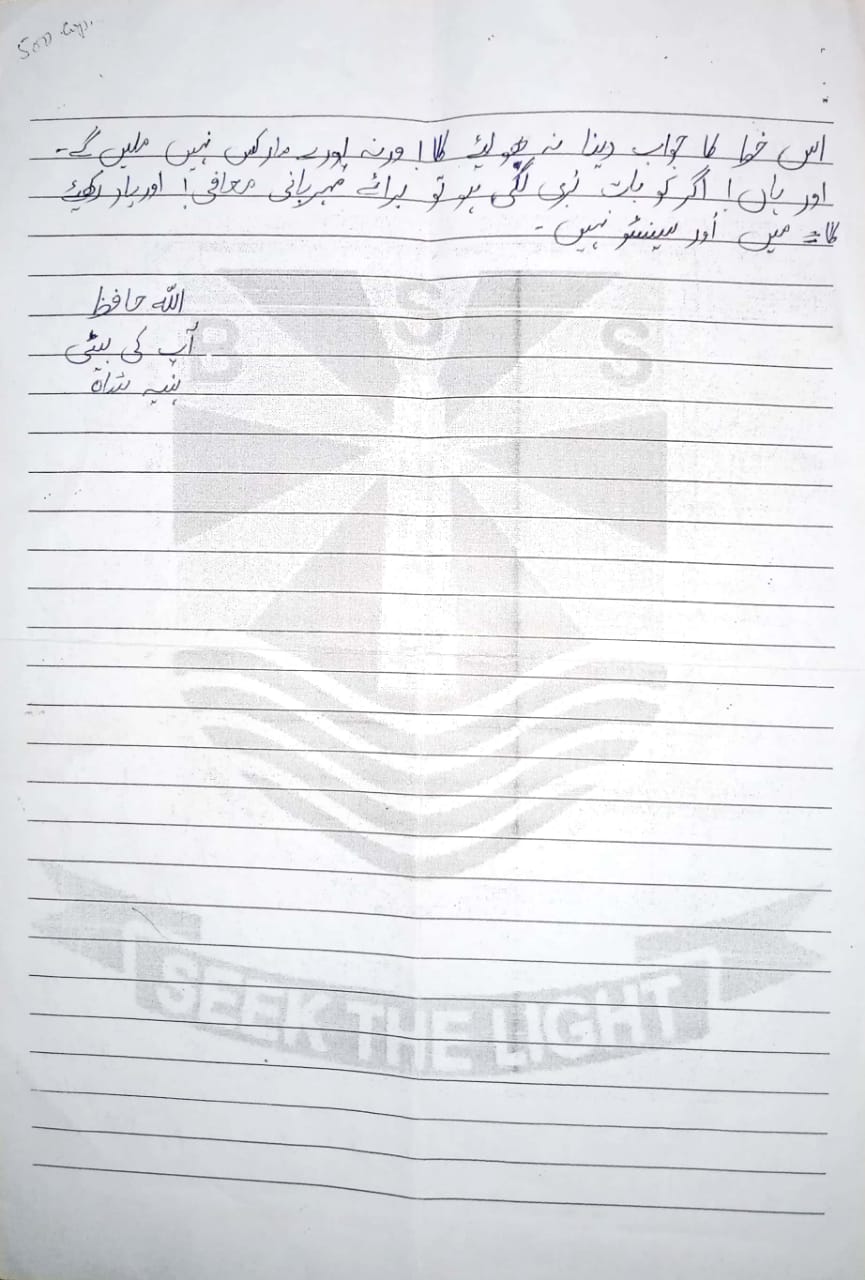 5000 Cop.
اس خط کا جواب دینا نہ بھولئے گا! ورنہ پورے مارکس نہیں ملیں گے۔
اور ہاں! اگر کو بات بُری لگی ہو تو برائے مہربانی معافی! اور یاد رکھیئے
گا= میں اُور سینسٹو نہیں۔
اللہ حافظ
آپ کی بیٹی
ہنیہ
B S S
SEEK THE LIGHT